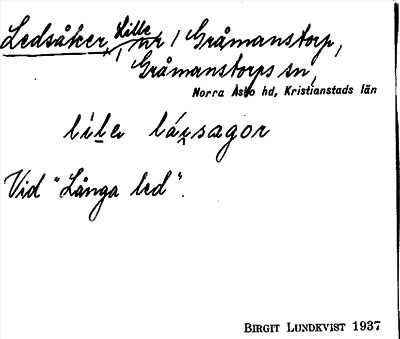 Ledsåker, Lille, nr 1 Gråmanstorp,
Gråmanstorps sn,
Norra Åsbo hd, Kristianstads län
Vid "Långa led".
BIRGIT LUNDKVIST 1937